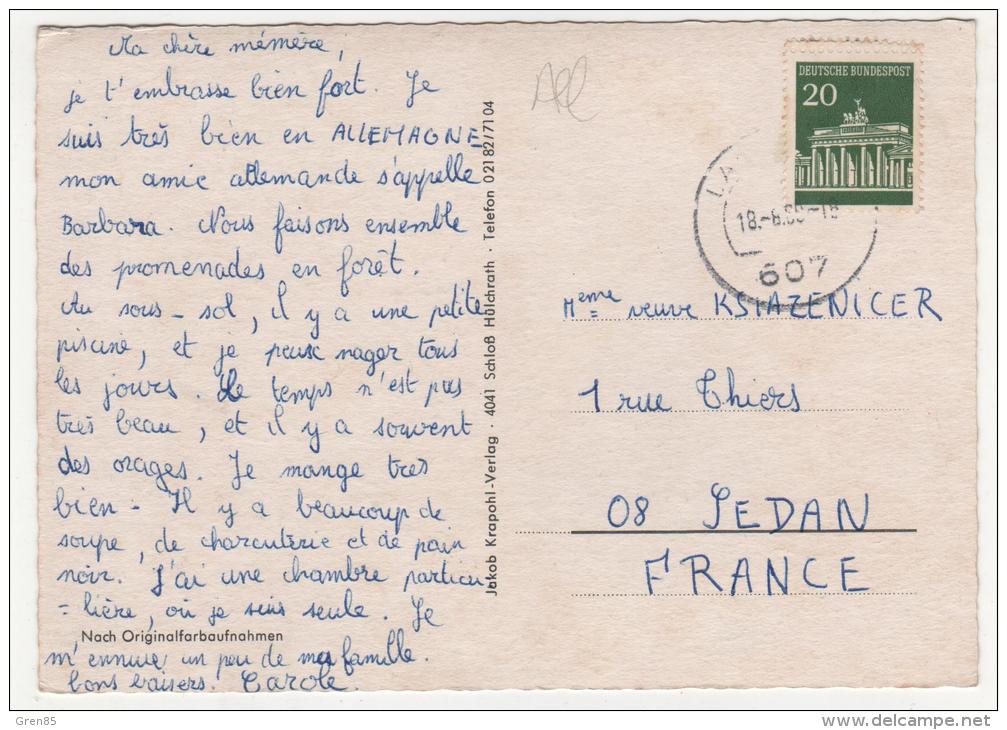 Ma chère mémère,
je t'embrasse bien fort. Je
suis très bien en ALLEMAGNE
mon amie allemande s'appelle
Barbara. Nous faisons ensemble
des promenades en forêt.
Au sous-sol, il y a une petite
piscine, et je peux nager tous
les jours. Le temps n'est pas
très beau, et il y a souvent
des orages. Je mange très
bien - Il y a beaucoup de
soupe, de charcuterie et de pain
noir. J'ai une chambre particu
= lière, où je suis seule. Je
m'ennuie un peu de ma famille.
bons baisers. Carole.
Nach Originalfarbaufnahmen
Jakob Krapohl-Verlag · 4041 Schloß Hülchrath · Telefon 02182/7104
All
DEUTSCHE BUNDESPOST
20
607
Meme = veuve KSIAZENICER
1 rue Thiers
08 SEDAN
FRANCE
Gren85
www.delcampe.net